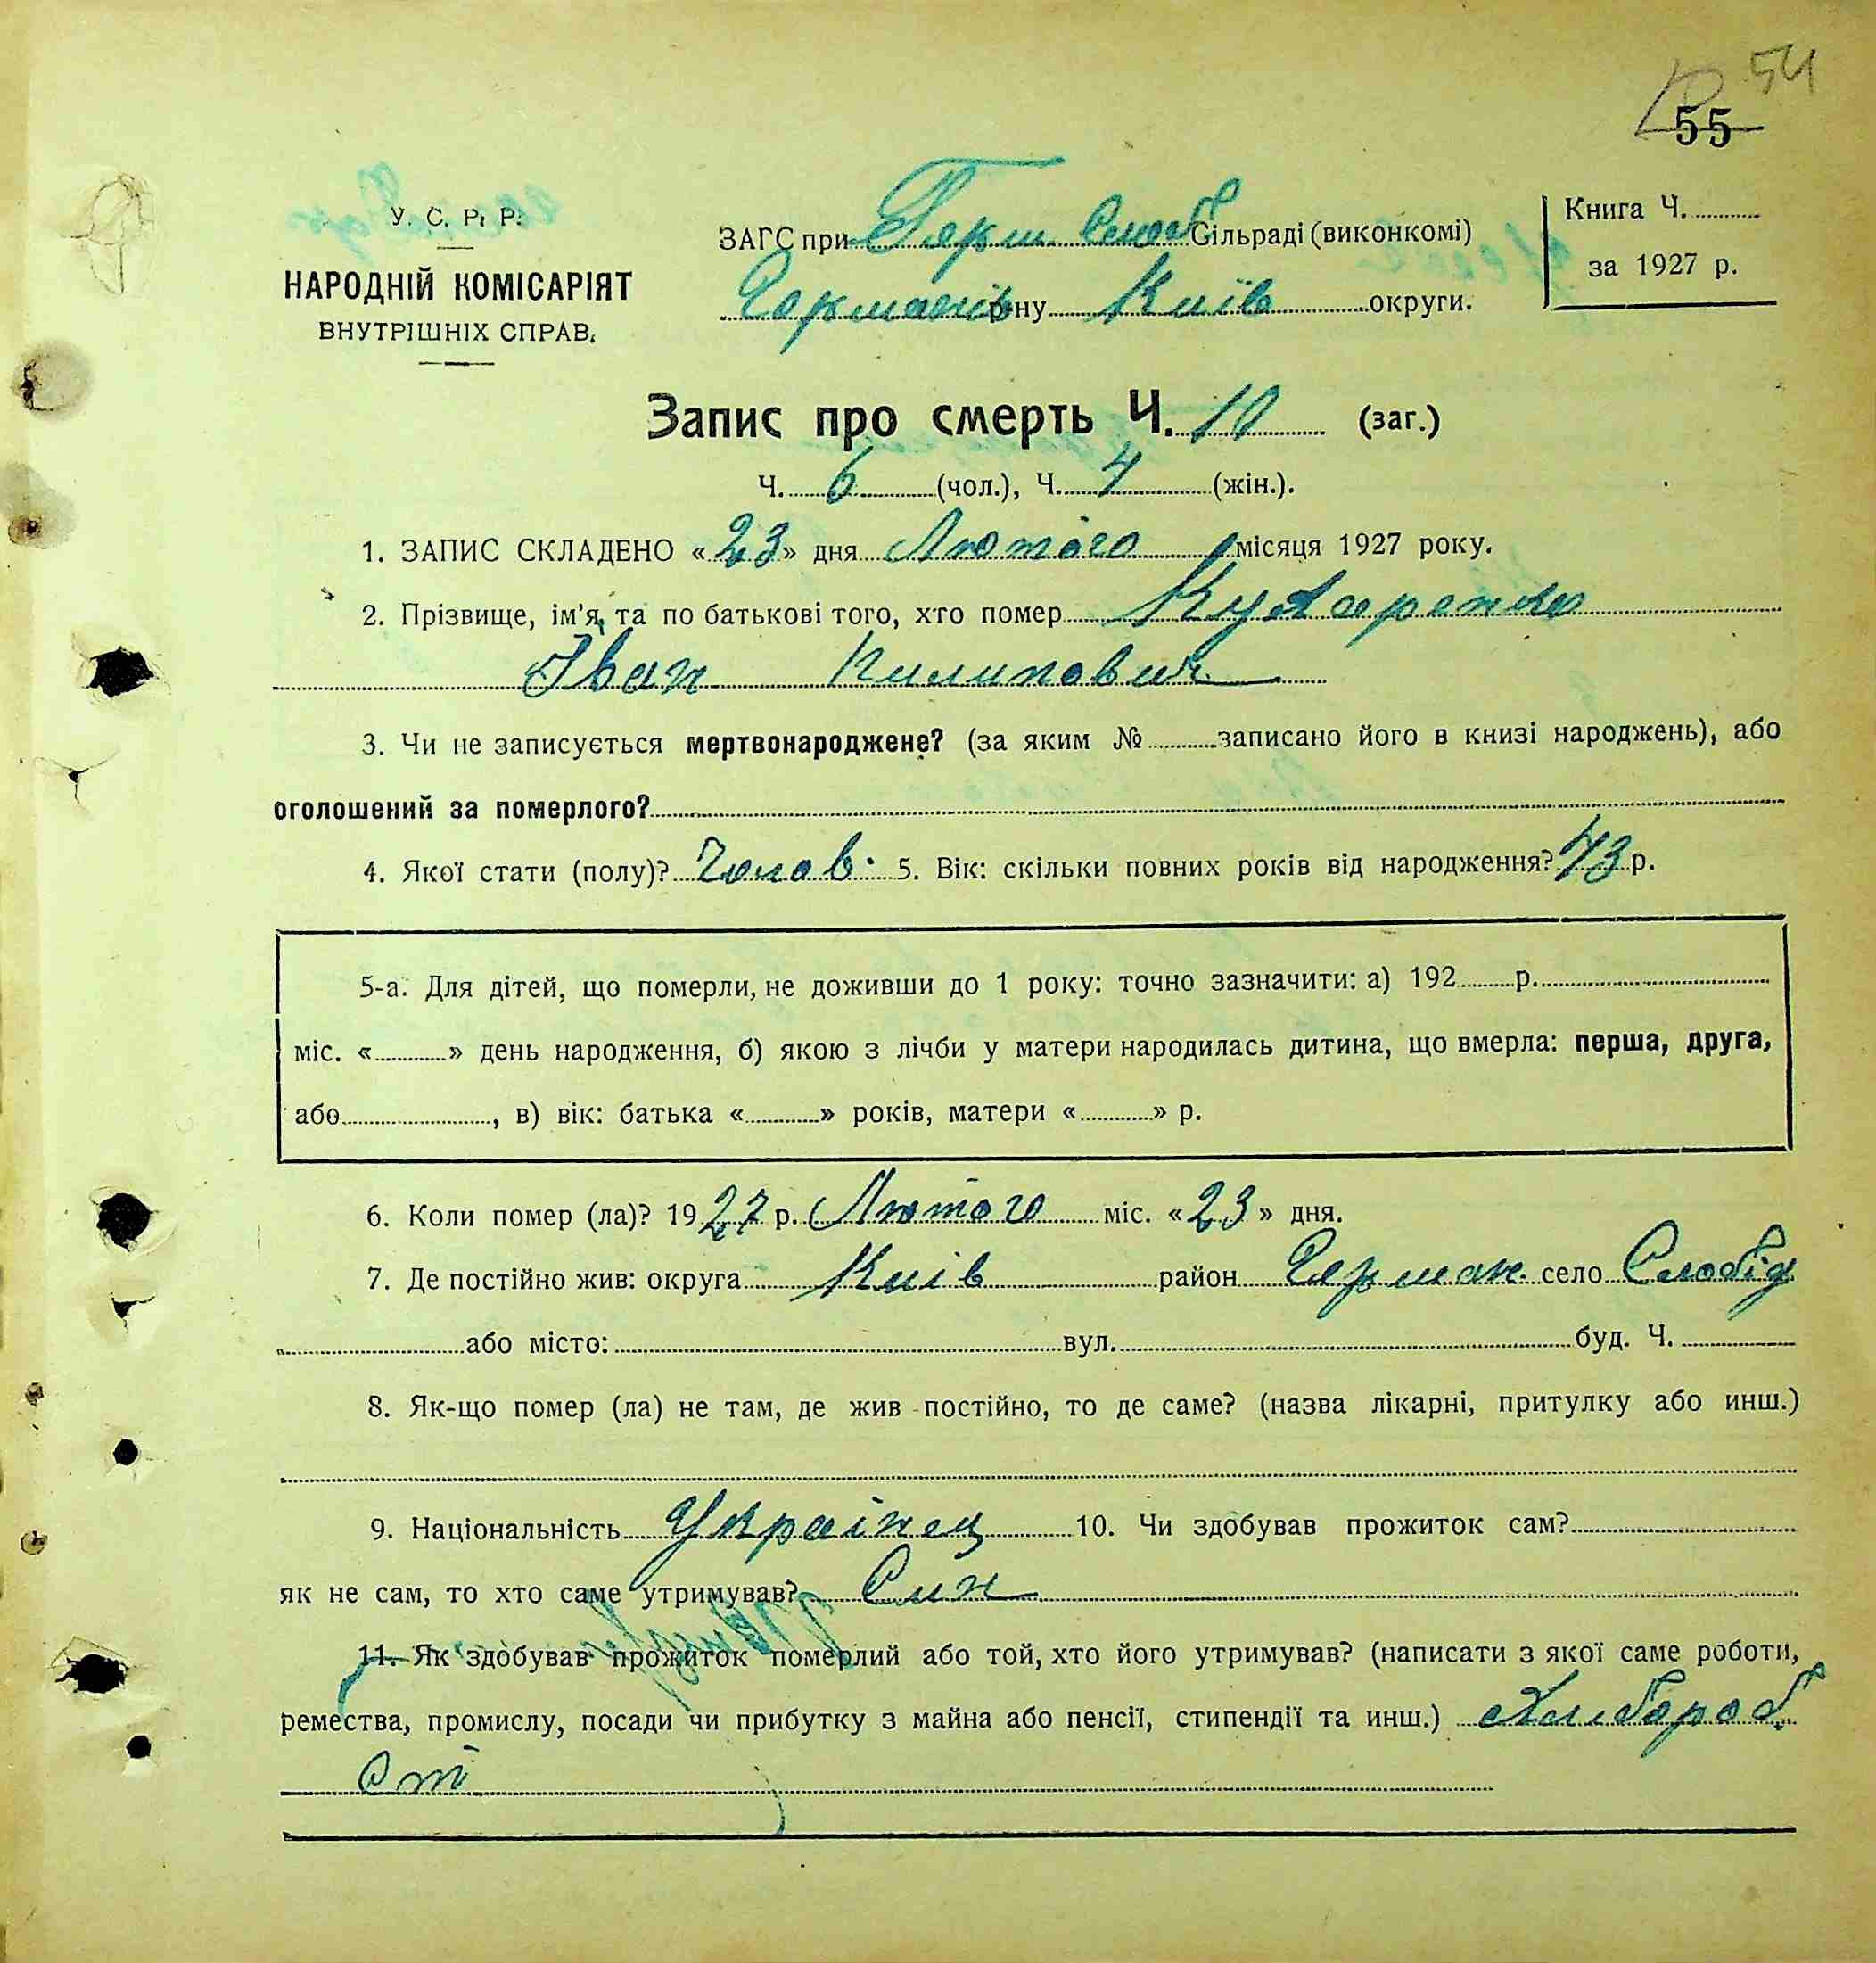 54
55
У. С. Р. Р.
НАРОДНІЙ КОМІСАРІЯТ
ВНУТРІШНІХ СПРАВ.
ЗАГС при Герм Слоб Сільраді (виконкомі)
Германів р-ну Київ округи.
Книга Ч.
за 1927 р.
Запис про смерть Ч. 10 (заг.)
Ч. 6 (чол.), Ч. 4 (жін.).
1. ЗАПИС СКЛАДЕНО «23» дня Лютого місяця 1927 року.
2. Прізвище, ім'я, та по батькові того, хто помер Кухаренко
Іван Пилипович
3. Чи не записується мертвонароджене? (за яким № записано його в книзі народжень), або
оголошений за померлого?
4. Якої стати (полу)? Чолов. 5. Вік: скільки повних років від народження? 73 р.
5-а. Для дітей, що померли, не доживши до 1 року: точно зазначити: а) 192 р.
міс. « » день народження, б) якою з лічби у матери народилась дитина, що вмерла: перша, друга,
або , в) вік: батька « » років, матери « » р.
6. Коли помер (ла)? 1927 р. Лютого міс. «23» дня.
7. Де постійно жив: округа Київ район Герман. село Слобід
або місто: вул. буд. Ч.
8. Як-що помер (ла) не там, де жив постійно, то де саме? (назва лікарні, притулку або инш.)
9. Національність Українец 10. Чи здобував прожиток сам?
як не сам, то хто саме утримував? Син
11. Як здобував прожиток померлий або той, хто його утримував? (написати з якої саме роботи,
ремества, промислу, посади чи прибутку з майна або пенсії, стипендії та инш.) Хлибороб